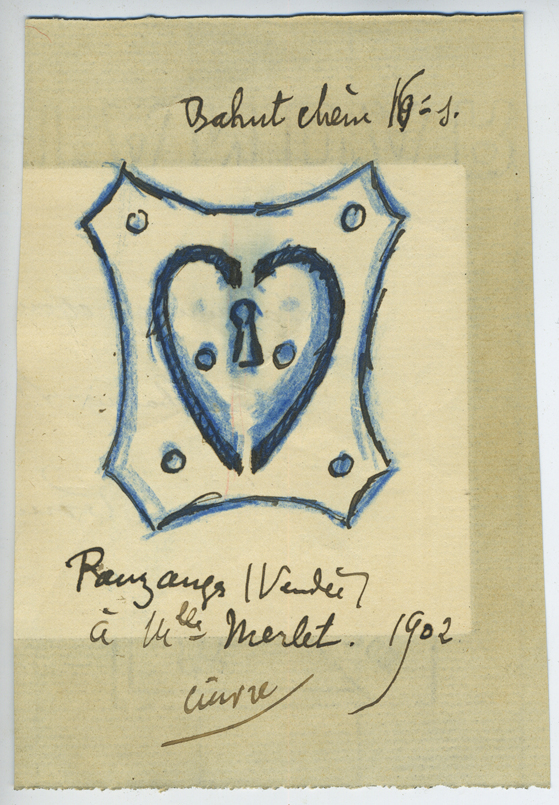 Bahut chêne 16e s.
Pouzauges (Vendée)
à Mlle Merlet. 1902
cuivre